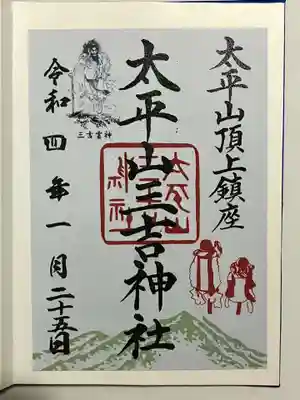 太平山頂上鎮座
太平山三吉神社
三吉霊神
令和四年一月二十五日